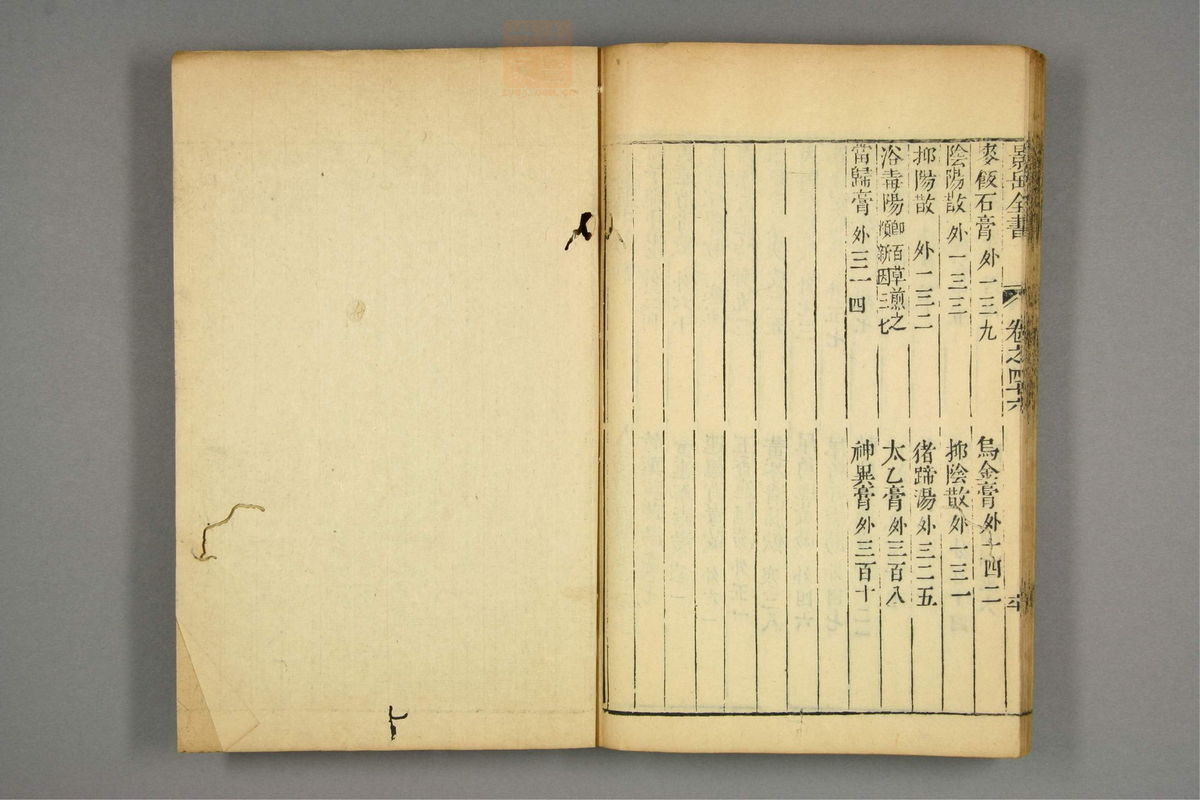 景岳全書 卷之四十六 六十
麥飯石膏 外一三九
烏金膏 外十四二
陰陽散 外一三三
抑陰散 外一三一
抑陽散 外一三二
猪蹄湯 外三二五
浴毒湯 即百草煎之類新因三七
太乙膏 外三百八
當歸膏 外三一四
神異膏 外三百十